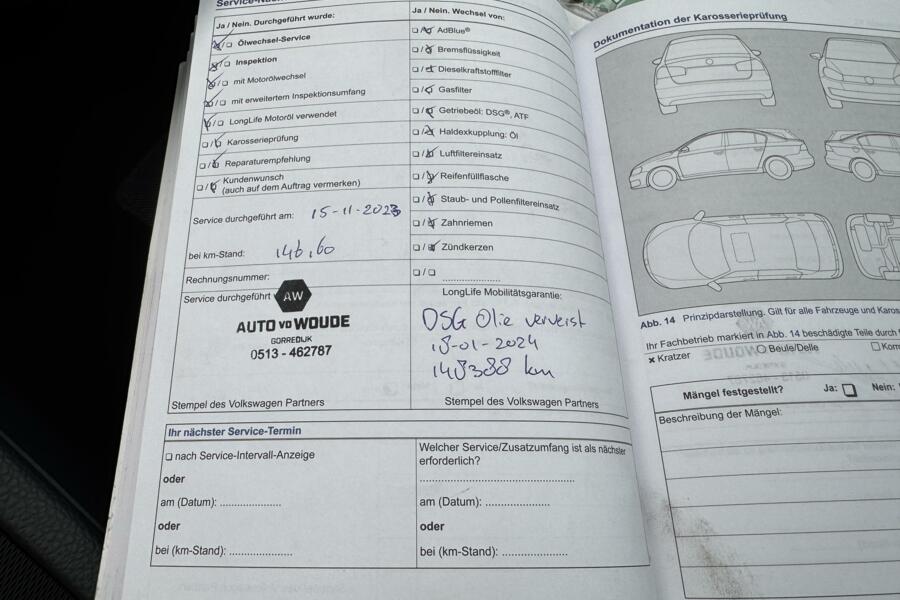 Service-Nach
Ja / Nein. Durchgeführt wurde:
Ölwechsel-Service
Inspektion
mit Motorölwechsel
mit erweitertem Inspektionsumfang
LongLife Motoröl verwendet
Karosserieprüfung
Reparaturempfehlung
Kundenwunsch
(auch auf dem Auftrag vermerken)
Service durchgeführt am: 15-11-2023
bei km-Stand: 146,60
Rechnungsnummer:
Service durchgeführt
AW
AUTO VD WOUDE
GORREDIJK
0513 - 462787
Stempel des Volkswagen Partners
Ja / Nein. Wechsel von:
AdBlue®
Bremsflüssigkeit
Dieselkraftstofffilter
Gasfilter
Getriebeöl: DSG®, ATF
Haldexkupplung: Öl
Luftfiltereinsatz
Reifenfüllflasche
Staub- und Pollenfiltereinsatz
Zahnriemen
Zündkerzen
LongLife Mobilitätsgarantie:
DSG Olie ververst
18-01-2024
148388 km
Stempel des Volkswagen Partners
Ihr nächster Service-Termin
nach Service-Intervall-Anzeige
oder
am (Datum): ....................
oder
bei (km-Stand): ....................
Welcher Service/Zusatzumfang ist als nächster
erforderlich?
am (Datum): ....................
oder
bei (km-Stand): ....................
Dokumentation der Karosserieprüfung
Abb. 14 Prinzipdarstellung. Gilt für alle Fahrzeuge und Karos
Ihr Fachbetrieb markiert in Abb. 14 beschädigte Teile durch
× Kratzer O Beule/Delle
Mängel festgestellt? Ja: Nein:
Beschreibung der Mängel: